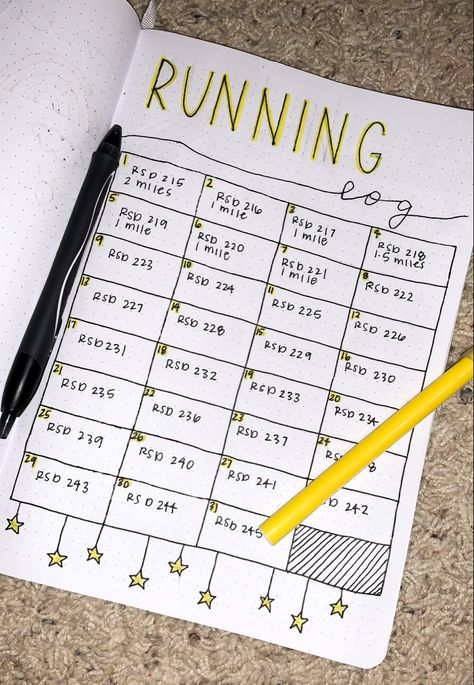 RUNNING
log
1 RSD 215
2 miles
2 RSD 216
1 mile
3 RSD 217
1 mile
4 RSD 218
1.5 miles
5 RSD 219
1 mile
6 RSD 220
1 mile
7 RSD 221
1 mile
8 RSD 222
9 RSD 223
10 RSD 224
11 RSD 225
12 RSD 226
13 RSD 227
14 RSD 228
15 RSD 229
16 RSD 230
17 RSD 231
18 RSD 232
19 RSD 233
20 RSD 234
21 RSD 235
22 RSD 236
23 RSD 237
24 RSD 8
25 RSD 239
26 RSD 240
27 RSD 241
242
29 RSD 243
30 RSD 244
31 RSD 245